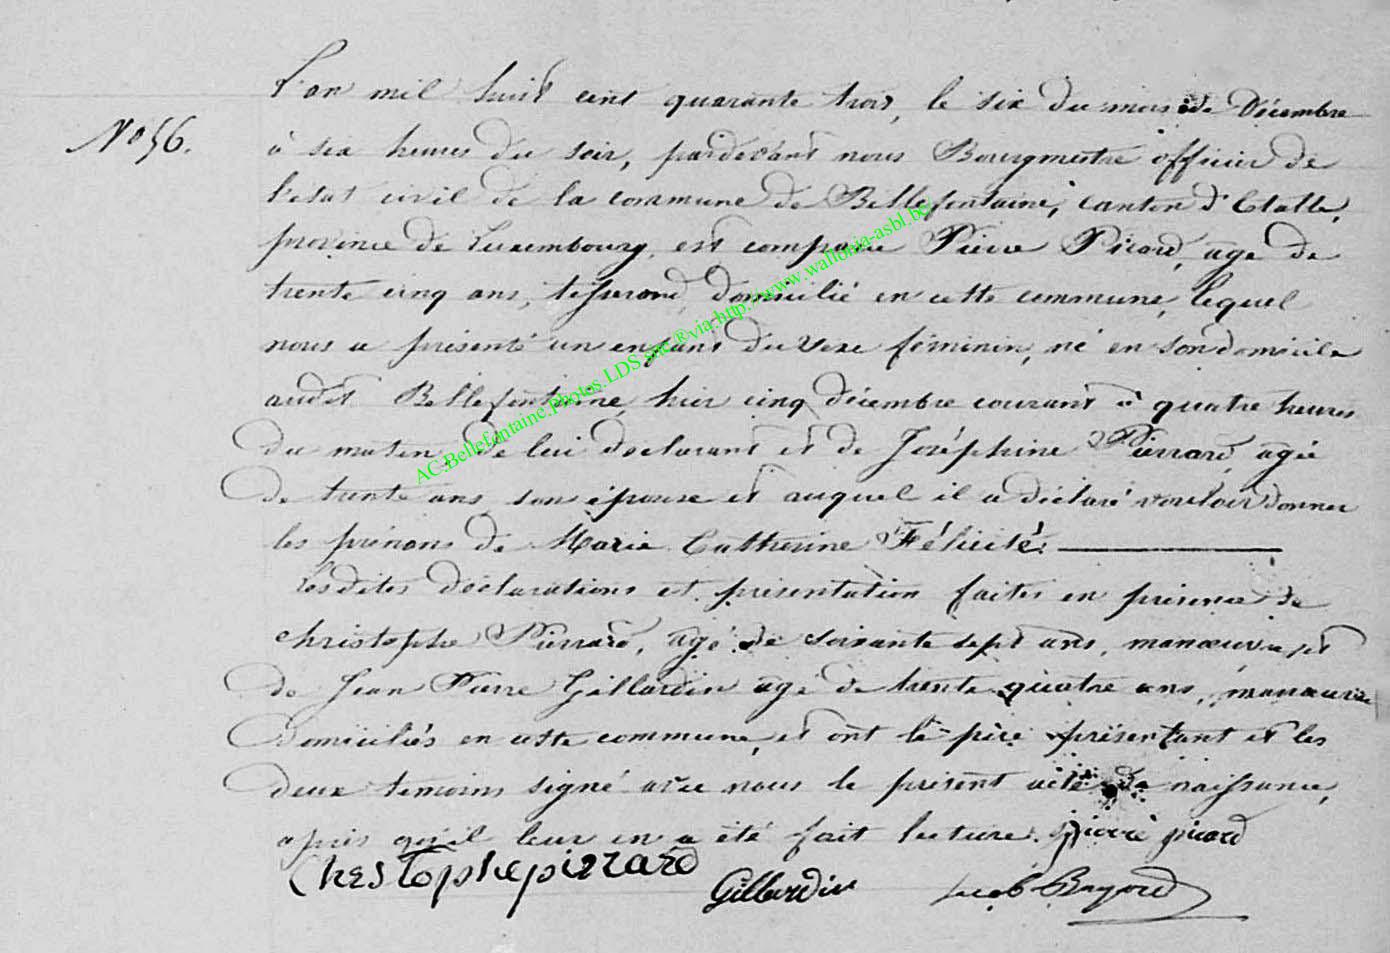 L'an mil huit cent quarante trois, le six du mois de Décembre
N° 56.
à six heures du soir, pardevant nous Bourgmestre officier de
l'état civil de la commune de Bellefontaine, canton d'Etalle,
province de Luxembourg, est comparu Pierre Picard, age de
trente cinq ans, tisserand, domicilié en cette commune, lequel
nous a présenté un enfant du sexe féminin, né en son domicile
audit Bellefontaine, hier cinq décembre courant à quatre heures
du matin, de lui déclarant et de Joséphine Pierrard, agée
de trente ans son épouse et auquel il a déclaré vouloir donner
les prénoms de Marie Catherine Félicité.
lesdites déclarations et présentation faites en présence de
christophe Pierrard, agé de soixante sept ans, manœuvre et
de Jean Pierre Gillardin agé de trente quatre ans, manœuvre
domiciliés en cette commune, et ont le père présentant et les
deux temoins signé avec nous le présent acte de naissance,
après qu'il leur en a été fait lecture. pierre picard
Chestophe pierrard
Gillardin Jacob Bayard
AC.Bellefontaine.Photos.LDS.snc.®via.http://www.wallonia-asbl.be/